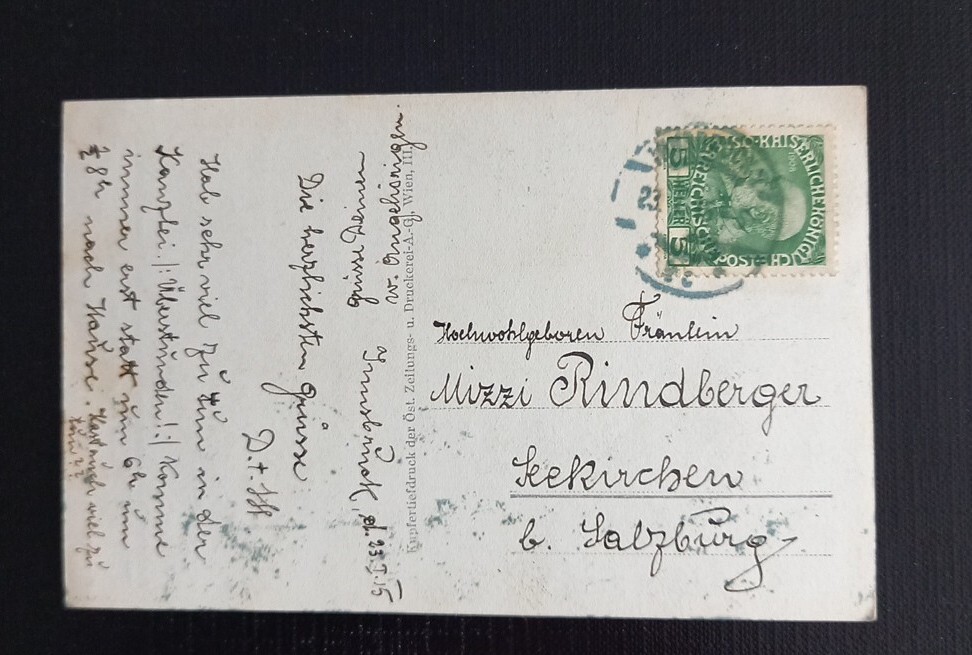 Innsbruck, d. 23.I.15
Die herzlichsten Grüsse
D. + H
Hab sehr viel zu tun in der
Kanzlei. /: Überstunden! :/ Komme
immer erst statt um 6h um
½ 8h nach Hause. Hast auch viel zu
tun??
grüsse Deinen
w. Angehörigen.
Kupfertiefdruck der Öst. Zeitungs- u. Druckerei-A.-G., Wien, III.
KAISERLICHEKÖNIGLICHE
ÖSTERREICHISCHE
POST
5 HELLER 5
1908
Hochwohlgeboren Fräulein
Mizzi Rindberger
Seekirchen
b. Salzburg